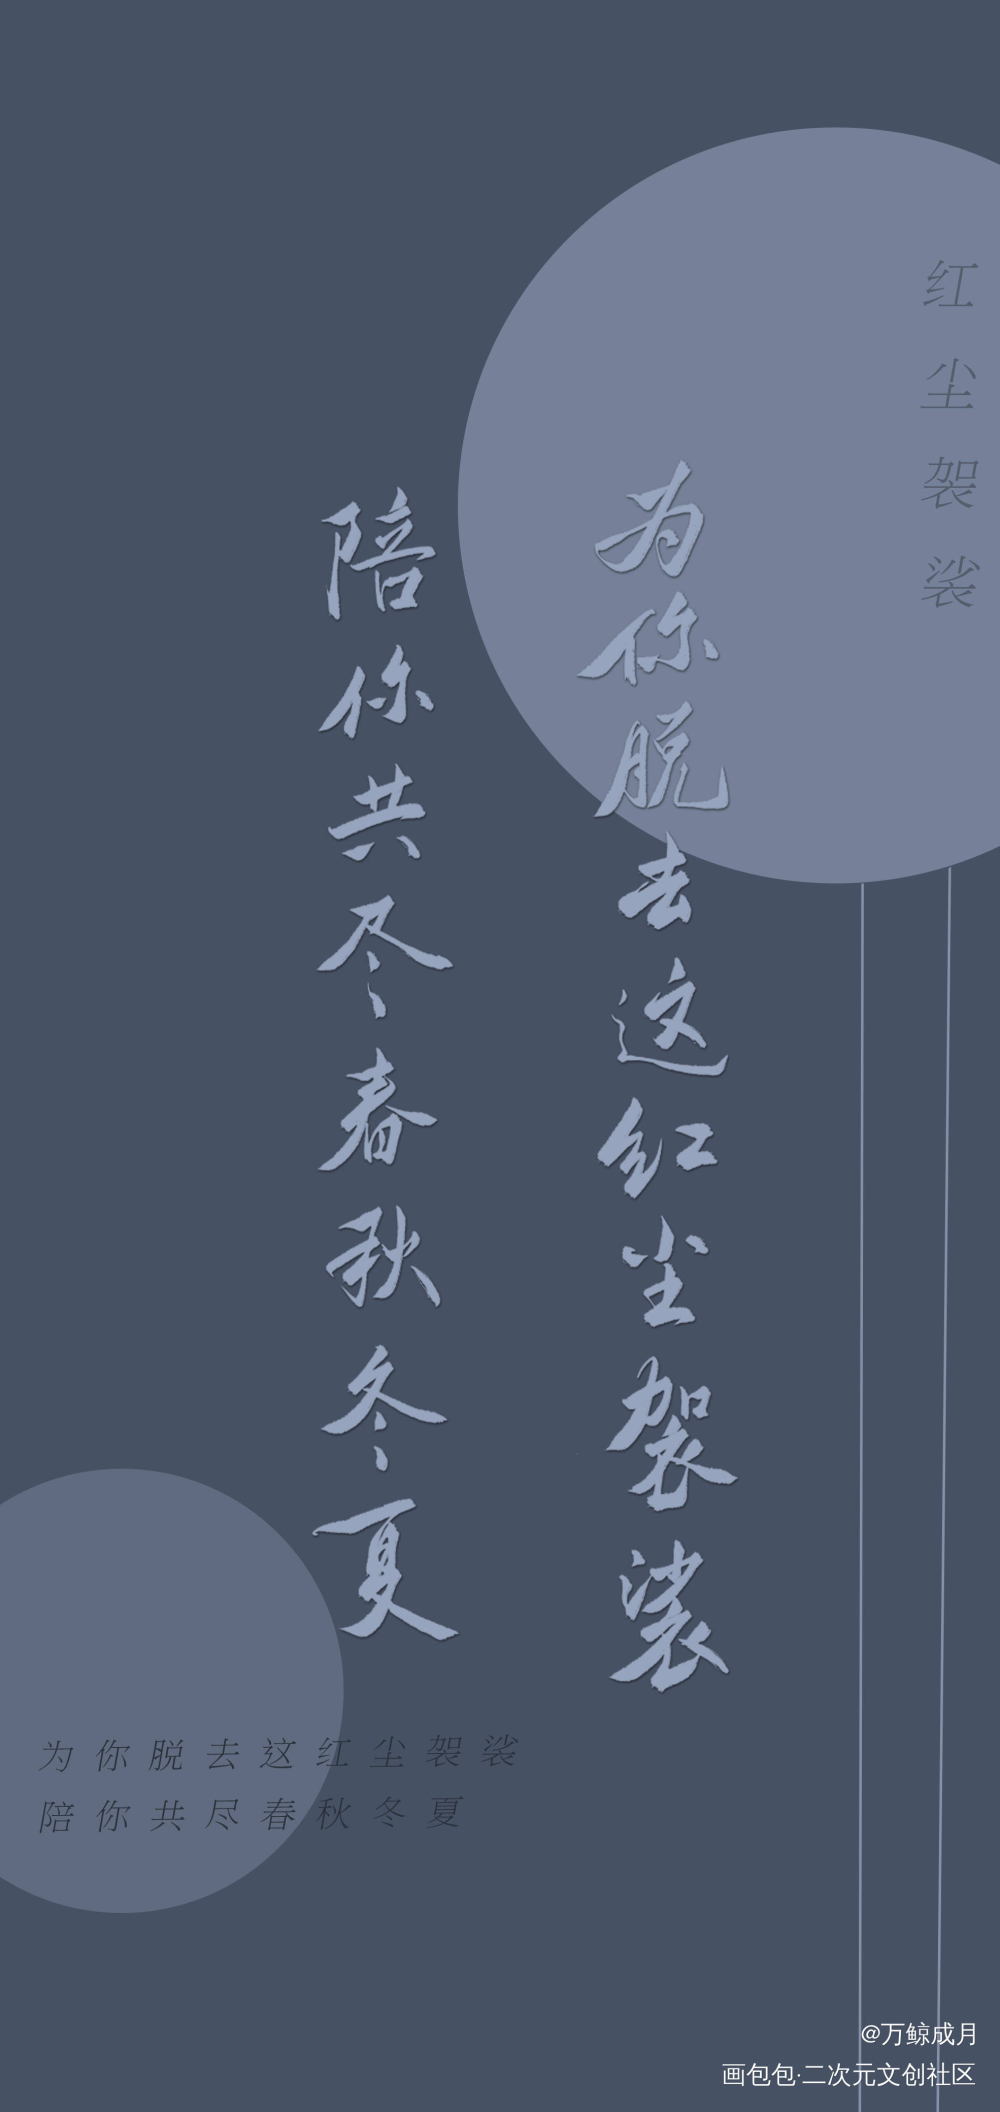 红尘袈裟
为你脱去这红尘袈裟
陪你共尽春秋冬夏
为你脱去这红尘袈裟
陪你共尽春秋冬夏
@万鲸成月
画包包·二次元文创社区